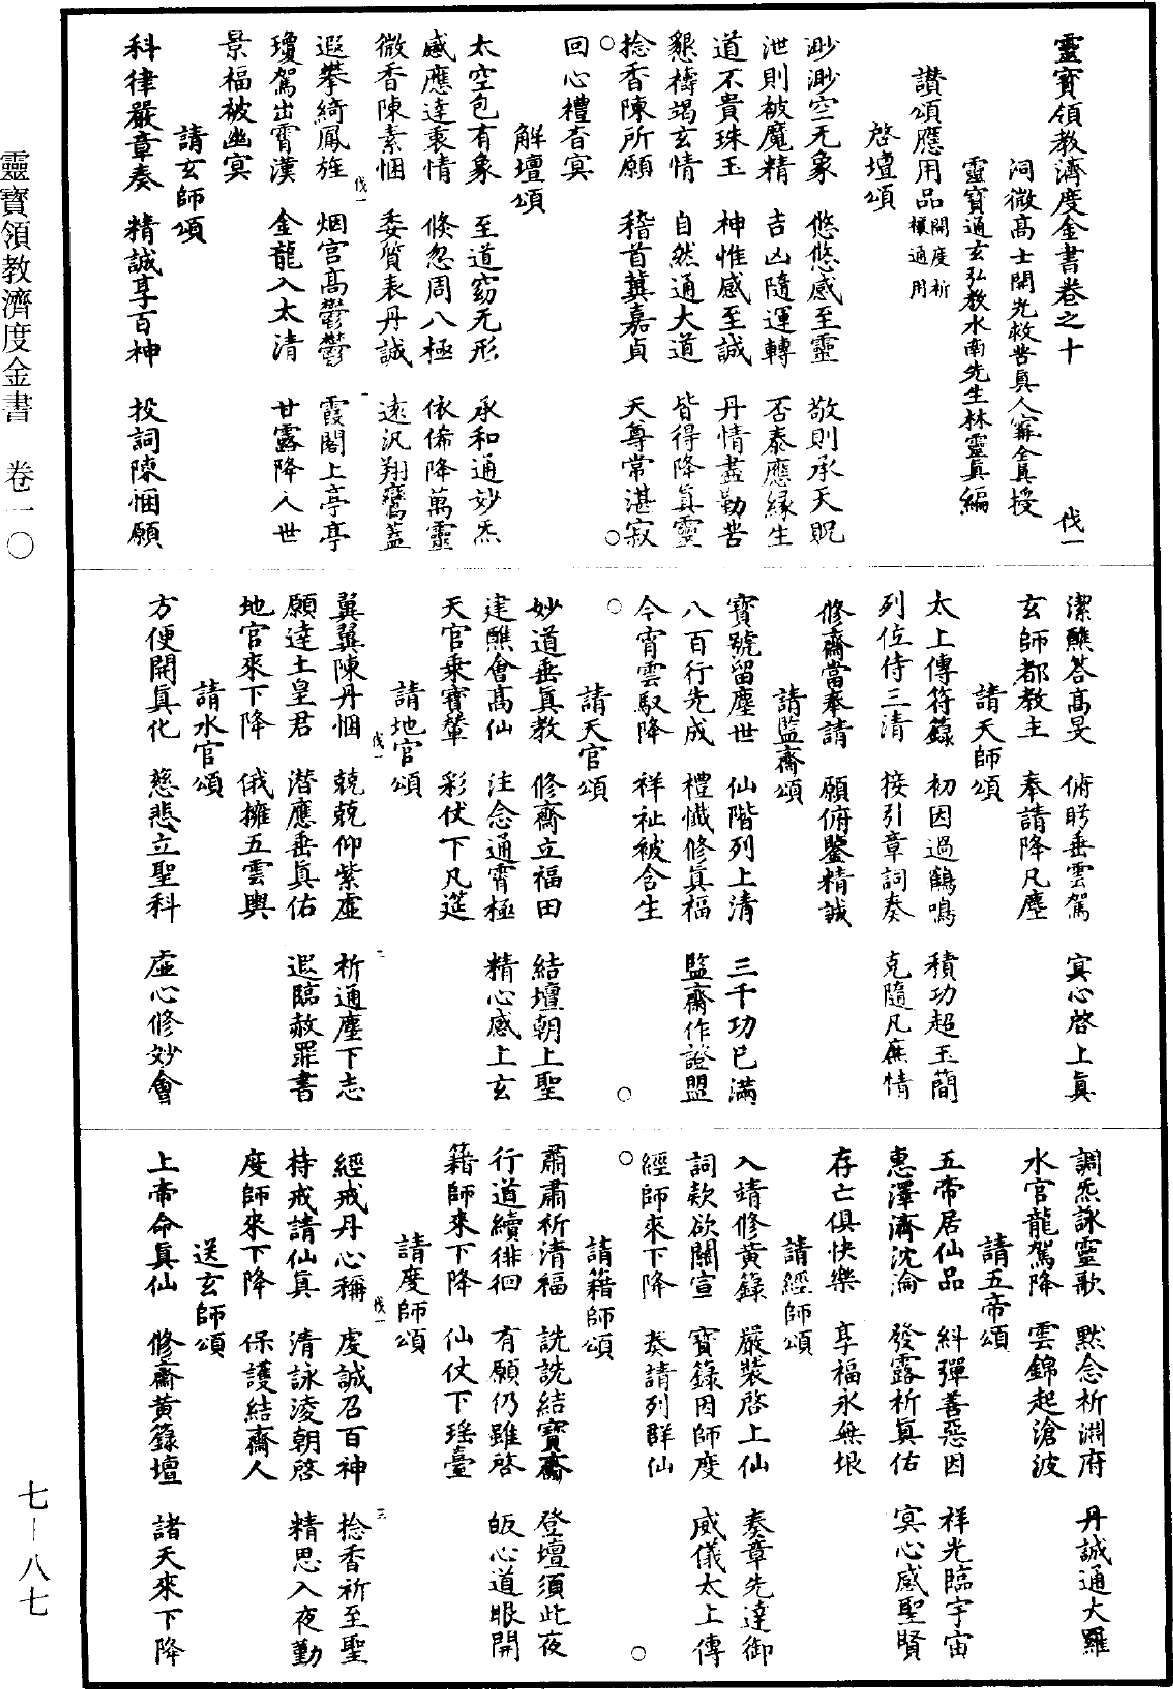 靈寶領教濟度金書卷之十 伐一
洞微高士開光救苦真人寗全真授
靈寶通玄弘教水南先生林靈真編
讃頌應用品 開度祈禳通用
啓壇頌
渺渺空无象 悠悠感至靈 敬則承天貺
泄則被魔精 吉凶隨運轉 否泰應緣生
道不貴珠玉 神惟感至誠 丹情盡勤苦
懇禱竭玄情 自然通大道 皆得降真靈
捻香陳所願 稽首冀嘉貞 天尊常湛寂
回心禮杳冥
○ ○
解壇頌
太空包有象 至道窈无形 承和通妙炁
感應達衷情 倏忽周八極 依俙降萬靈
微香陳素悃 委質表丹誠 遠汎翔鸞蓋
遐攀綺鳳旌 烟宫高鬱鬱 霞閣上亭亭
伐一 一
瓊駕出霄漢 金龍入太清 甘露降人世
景福被幽冥
請玄師頌
科律嚴章奏 精誠享百神 投詞陳悃願
潔醮荅高旻 俯盻垂雲駕 冥心啓上真
玄師都教主 奉請降凡塵
請天師頌
太上傳符籙 初因過鶴鳴 積功超玉蕳
列位侍三清 接引章詞奏 克隨凡庶情
修齋當奉請 願俯鑒精誠
請監齋頌
寶號留塵世 仙階列上清 三千功已滿
八百行先成 禮懺修真福 監齋作證盟
今宵雲馭降 祥祉被含生
○ ○
請天官頌
妙道垂真教 修齋立福田 結壇朝上聖
建醮會高仙 注念通霄極 精心感上玄
天官乘寶輦 彩仗下凡筵
請地官頌
伐一 二
翼翼陳丹悃 兢兢仰紫虚 祈通塵下志
願達土皇君 潜應垂真佑 遐臨赦罪書
地官來下降 俄擁五雲輿
請水官頌
方便開真化 慈悲立聖科 虚心修妙會
調炁詠靈歌 默念祈淵府 丹誠通大羅
水官龍駕降 雲錦起滄波
請五帝頌
五帝居仙品 糾彈善惡因 祥光臨宇宙
惠澤濟沈淪 發露祈真佑 冥心感聖賢
存亡俱快樂 享福永無垠
請經師頌
入靖修黄籙 嚴裝啓上仙 奏章先達御
詞欵欲關宣 寶籙因師度 威儀太上傳
經師來下降 奏請列群仙
○ ○
請籍師頌
肅肅祈清福 詵詵結寶齋 登壇須此夜
行道續徘徊 有願仍雖啓 皈心道眼開
籍師來下降 仙仗下瑶臺
請度師頌
伐一 三
經戒丹心稱 虔誠召百神 捻香祈至聖
持戒請仙真 清詠淩朝啓 精思入夜勤
度師來下降 保護結齋人
送玄師頌
上帝命真仙 修齋黄籙壇 諸天來下降
靈寶領教濟度金書 卷一〇
七－八七